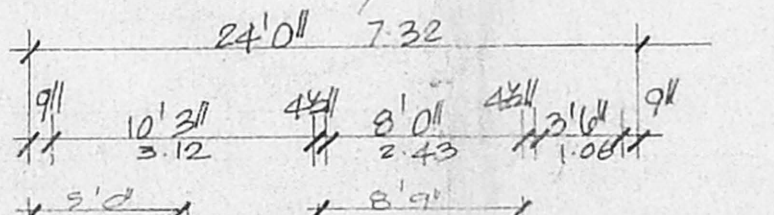 24'0" 7.32
9" 10'3" 4½" 8'0" 4½" 3'6" 9"
3.12 2.43 1.06
5'0" 8'9"